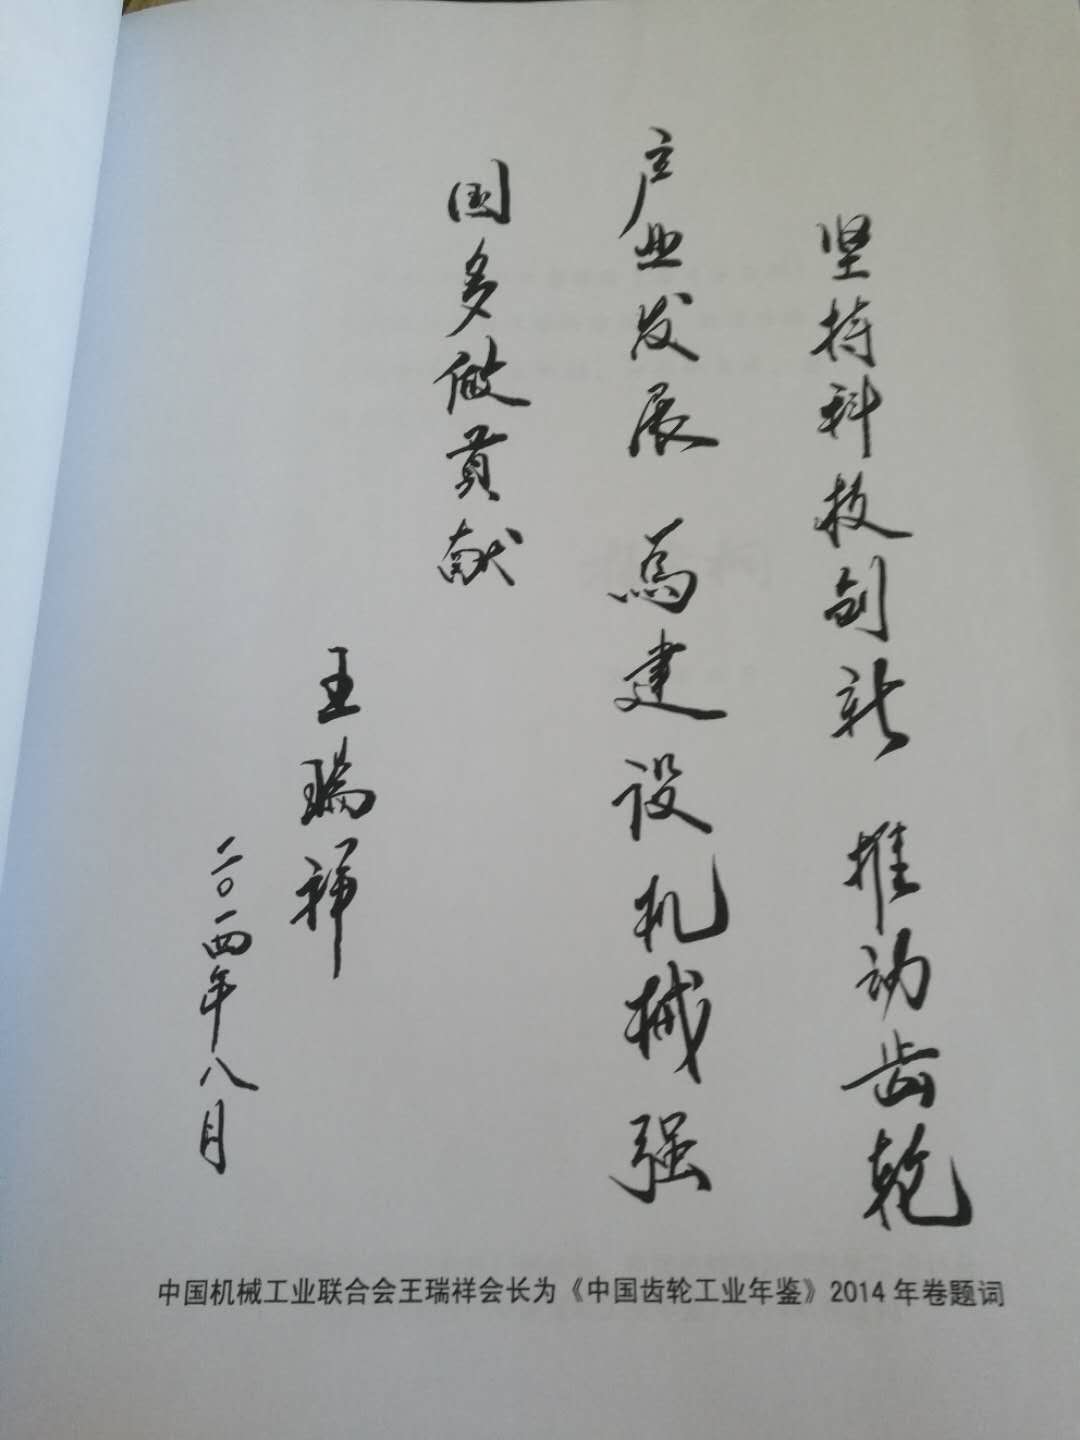 坚持科技创新 推动齿轮
产业发展 为建设机械强
国多做贡献
王瑞祥
二〇一四年八月
中国机械工业联合会王瑞祥会长为《中国齿轮工业年鉴》2014年卷题词